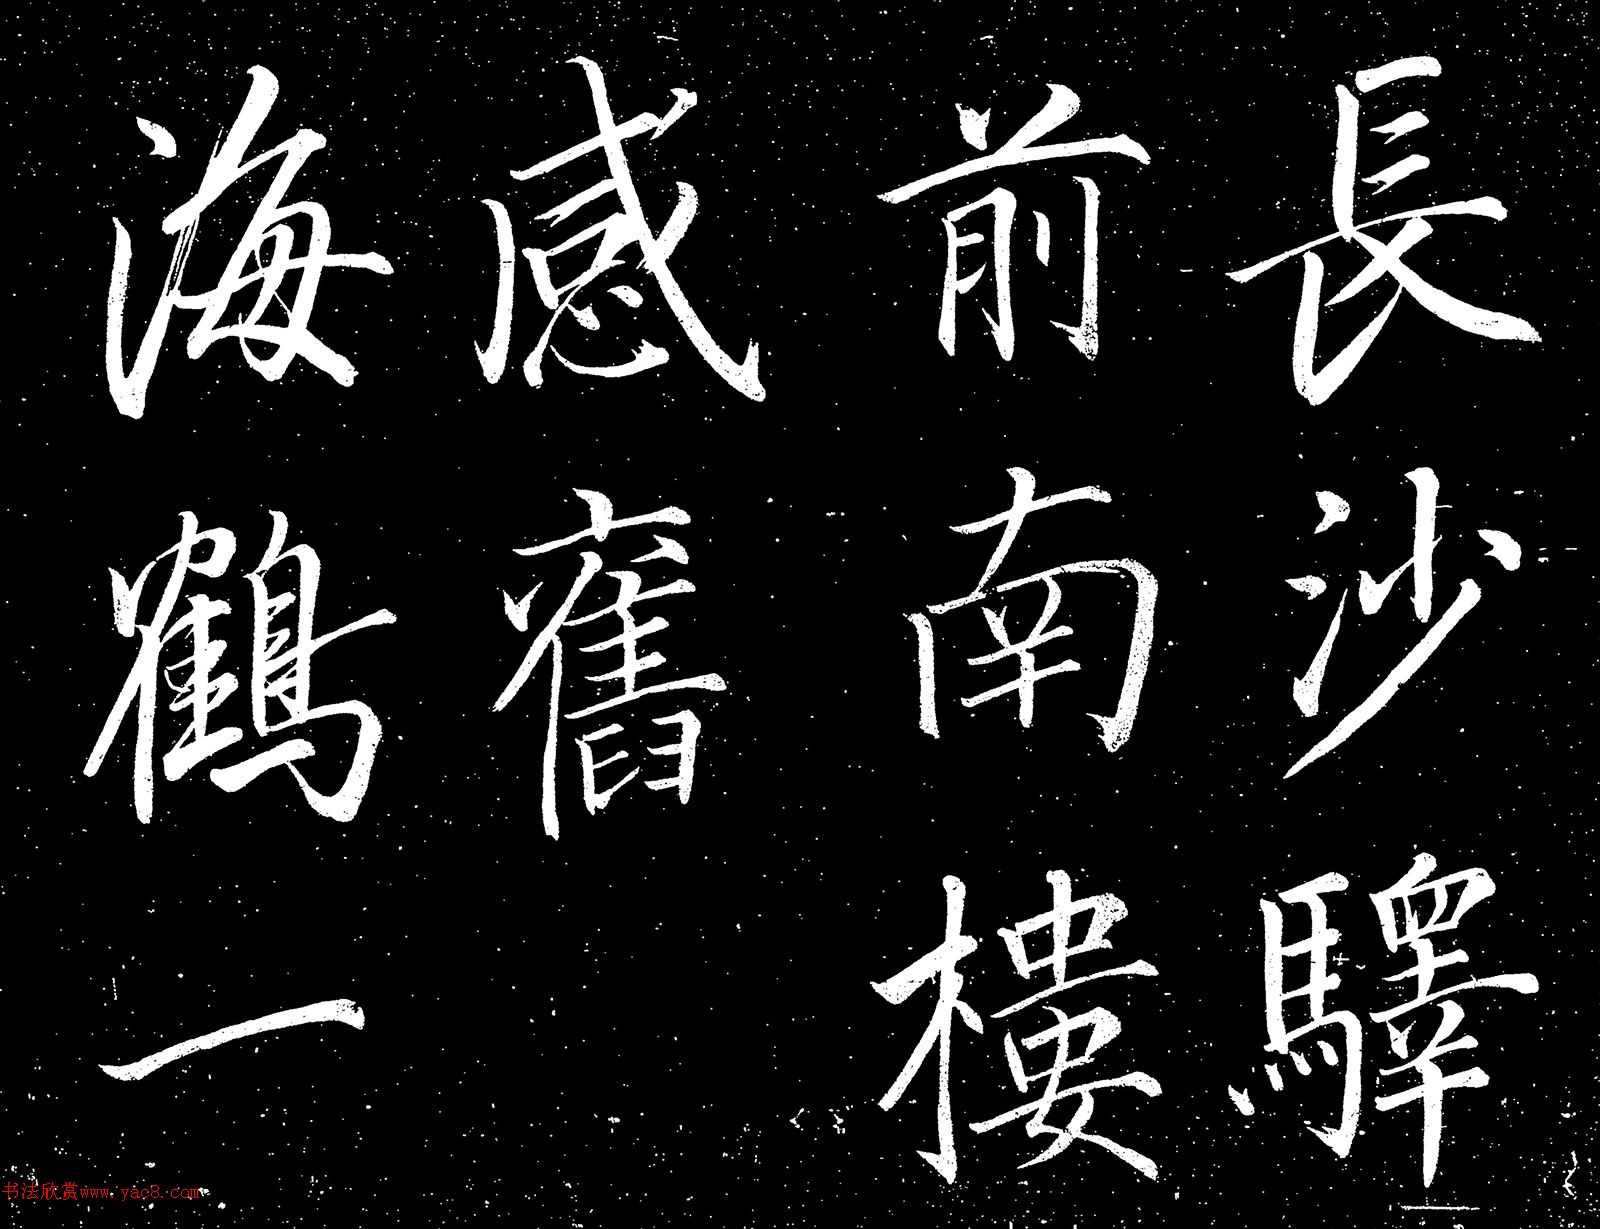 長沙驛
前南樓
感舊
海鶴一
书法欣赏www.yac8.com